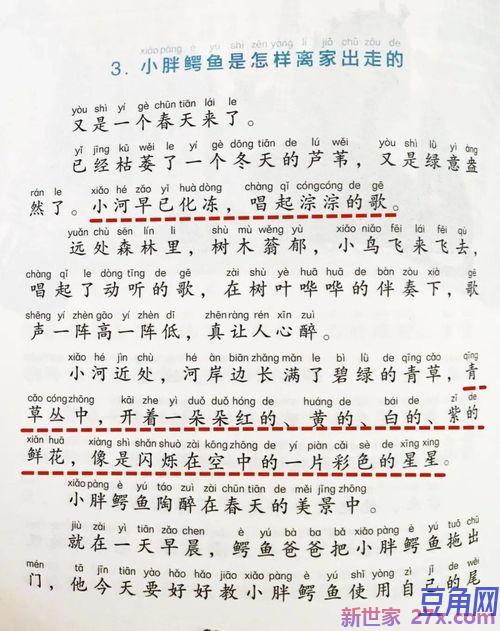 xiǎo pàng è yú shì zěn yàng lí jiā chū zǒu de
3. 小胖鳄鱼是怎样离家出走的
yòu shì yí gè chūn tiān lái le
又是一个春天来了。
yǐ jīng kū wěi le yí gè dōng tiān de lú wěi yòu shì lǜ yì àng
已经枯萎了一个冬天的芦苇，又是绿意盎
rán le xiǎo hé zǎo yǐ huà dòng chàng qǐ cóng cóng de gē
然了。小河早已化冻，唱起淙淙的歌。
yuǎn chù sēn lín lǐ shù mù wěng yù xiǎo niǎo fēi lái fēi qù
远处森林里，树木蓊郁，小鸟飞来飞去，
chàng qǐ le dòng tīng de gē zài shù yè huā huā de bàn zòu xià gē
唱起了动听的歌，在树叶哗哗的伴奏下，歌
shēng yí zhèn gāo yí zhèn dī zhēn ràng rén xīn zuì
声一阵高一阵低，真让人心醉。
xiǎo hé jìn chù hé àn biān zhǎng mǎn le bì lǜ de qīng cǎo qīng
小河近处，河岸边长满了碧绿的青草，青
cǎo cóng zhōng kāi zhe yì duǒ duǒ hóng de huáng de bái de zǐ de
草丛中，开着一朵朵红的、黄的、白的、紫的
xiān huā xiàng shì shǎn shuò zài kōng zhōng de yí piàn cǎi sè de xīng xing
鲜花，像是闪烁在空中的一片彩色的星星。
xiǎo pàng è yú táo zuì zài chūn tiān de měi jǐng zhōng
小胖鳄鱼陶醉在春天的美景中。
jiù zài yì tiān zǎo chen è yú bà ba bǎ xiǎo pàng è yú tuō chū
就在一天早晨，鳄鱼爸爸把小胖鳄鱼拖出
mén tā jīn tiān yào hǎo hǎo jiāo xiǎo pàng è yú shǐ yòng zì jǐ de wěi
门，他今天要好好教小胖鳄鱼使用自己的尾
豆角网
新世家 27x.com